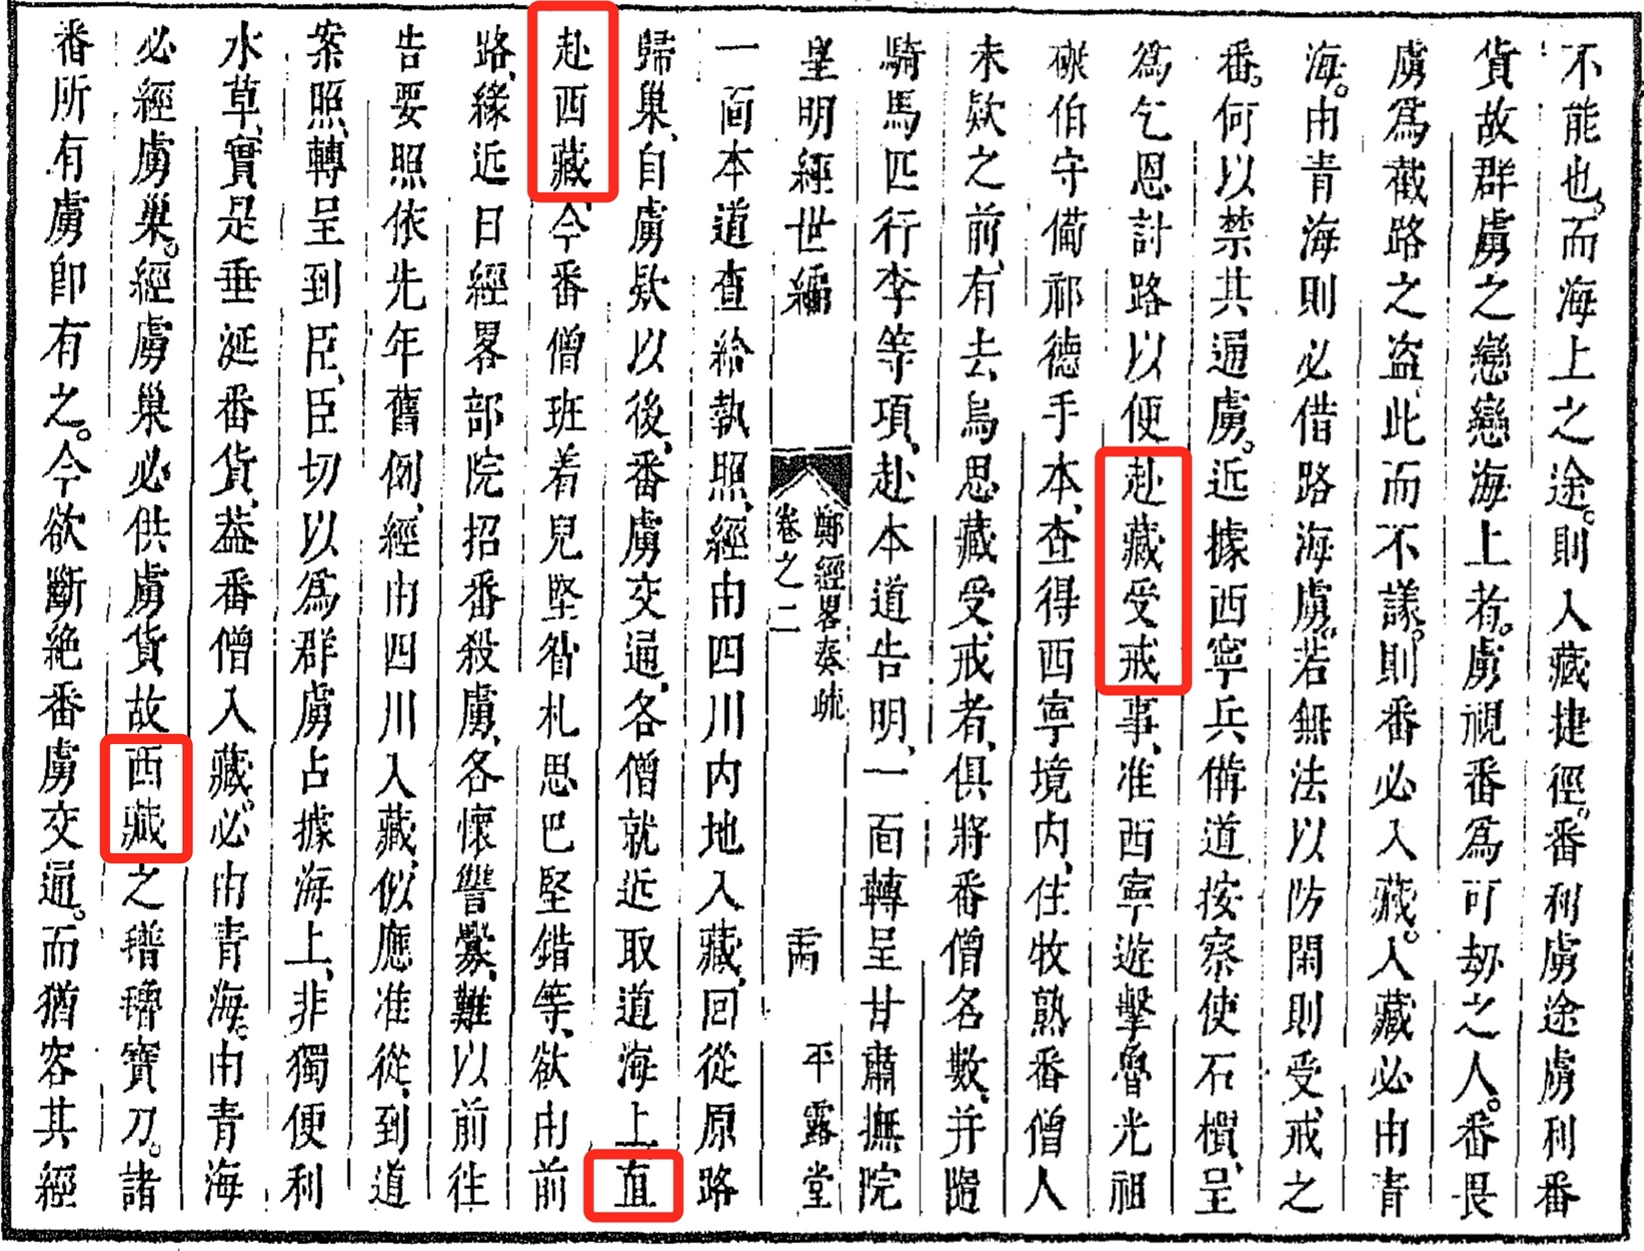 不能也。而海上之途。則入藏捷徑。番利虜途虜利番
貨故群虜之戀戀海上者。虜視番爲可劫之人。番畏
虜爲截路之盜、此而不議。則番必入藏。入藏必由青
海。由青海則必借路海虜。若無法以防閑則受戒之
番。何以禁其通虜。近據西寧兵備道按察使石檟、呈
爲乞恩討路以便赴藏受戒事、准西寧遊擊魯光祖
碾伯守備祁德手本、查得西寧境内、住牧熟番僧人
未欵之前、有去烏思藏受戒者、俱將番僧名數、并隨
騎馬匹行李等項、赴本道告明、一面轉呈甘肅撫院
皇明經世編
鄭經畧奏疏
卷之二
平露堂
一面本道查給執照、經由四川内地入藏、回從原路
歸巢、自虜欵以後、番虜交通、各僧就近取道海上直
赴西藏、今番僧班着兒堅昝札思巴堅錯等、欲由前
路、緣近日經畧部院招番殺虜、各懷讐釁、難以前往
告要照依先年舊例、經由四川入藏、似應准從、到道
案照、轉呈到臣、臣切以爲群虜占據海上、非獨便利
水草、實是垂涎番貨、葢番僧入藏。必由青海。由青海
必經虜巢。經虜巢必供虜貨故西藏之氆氌寶刀。諸
番所有虜卽有之。今欲斷絶番虜交通。而猶容其經